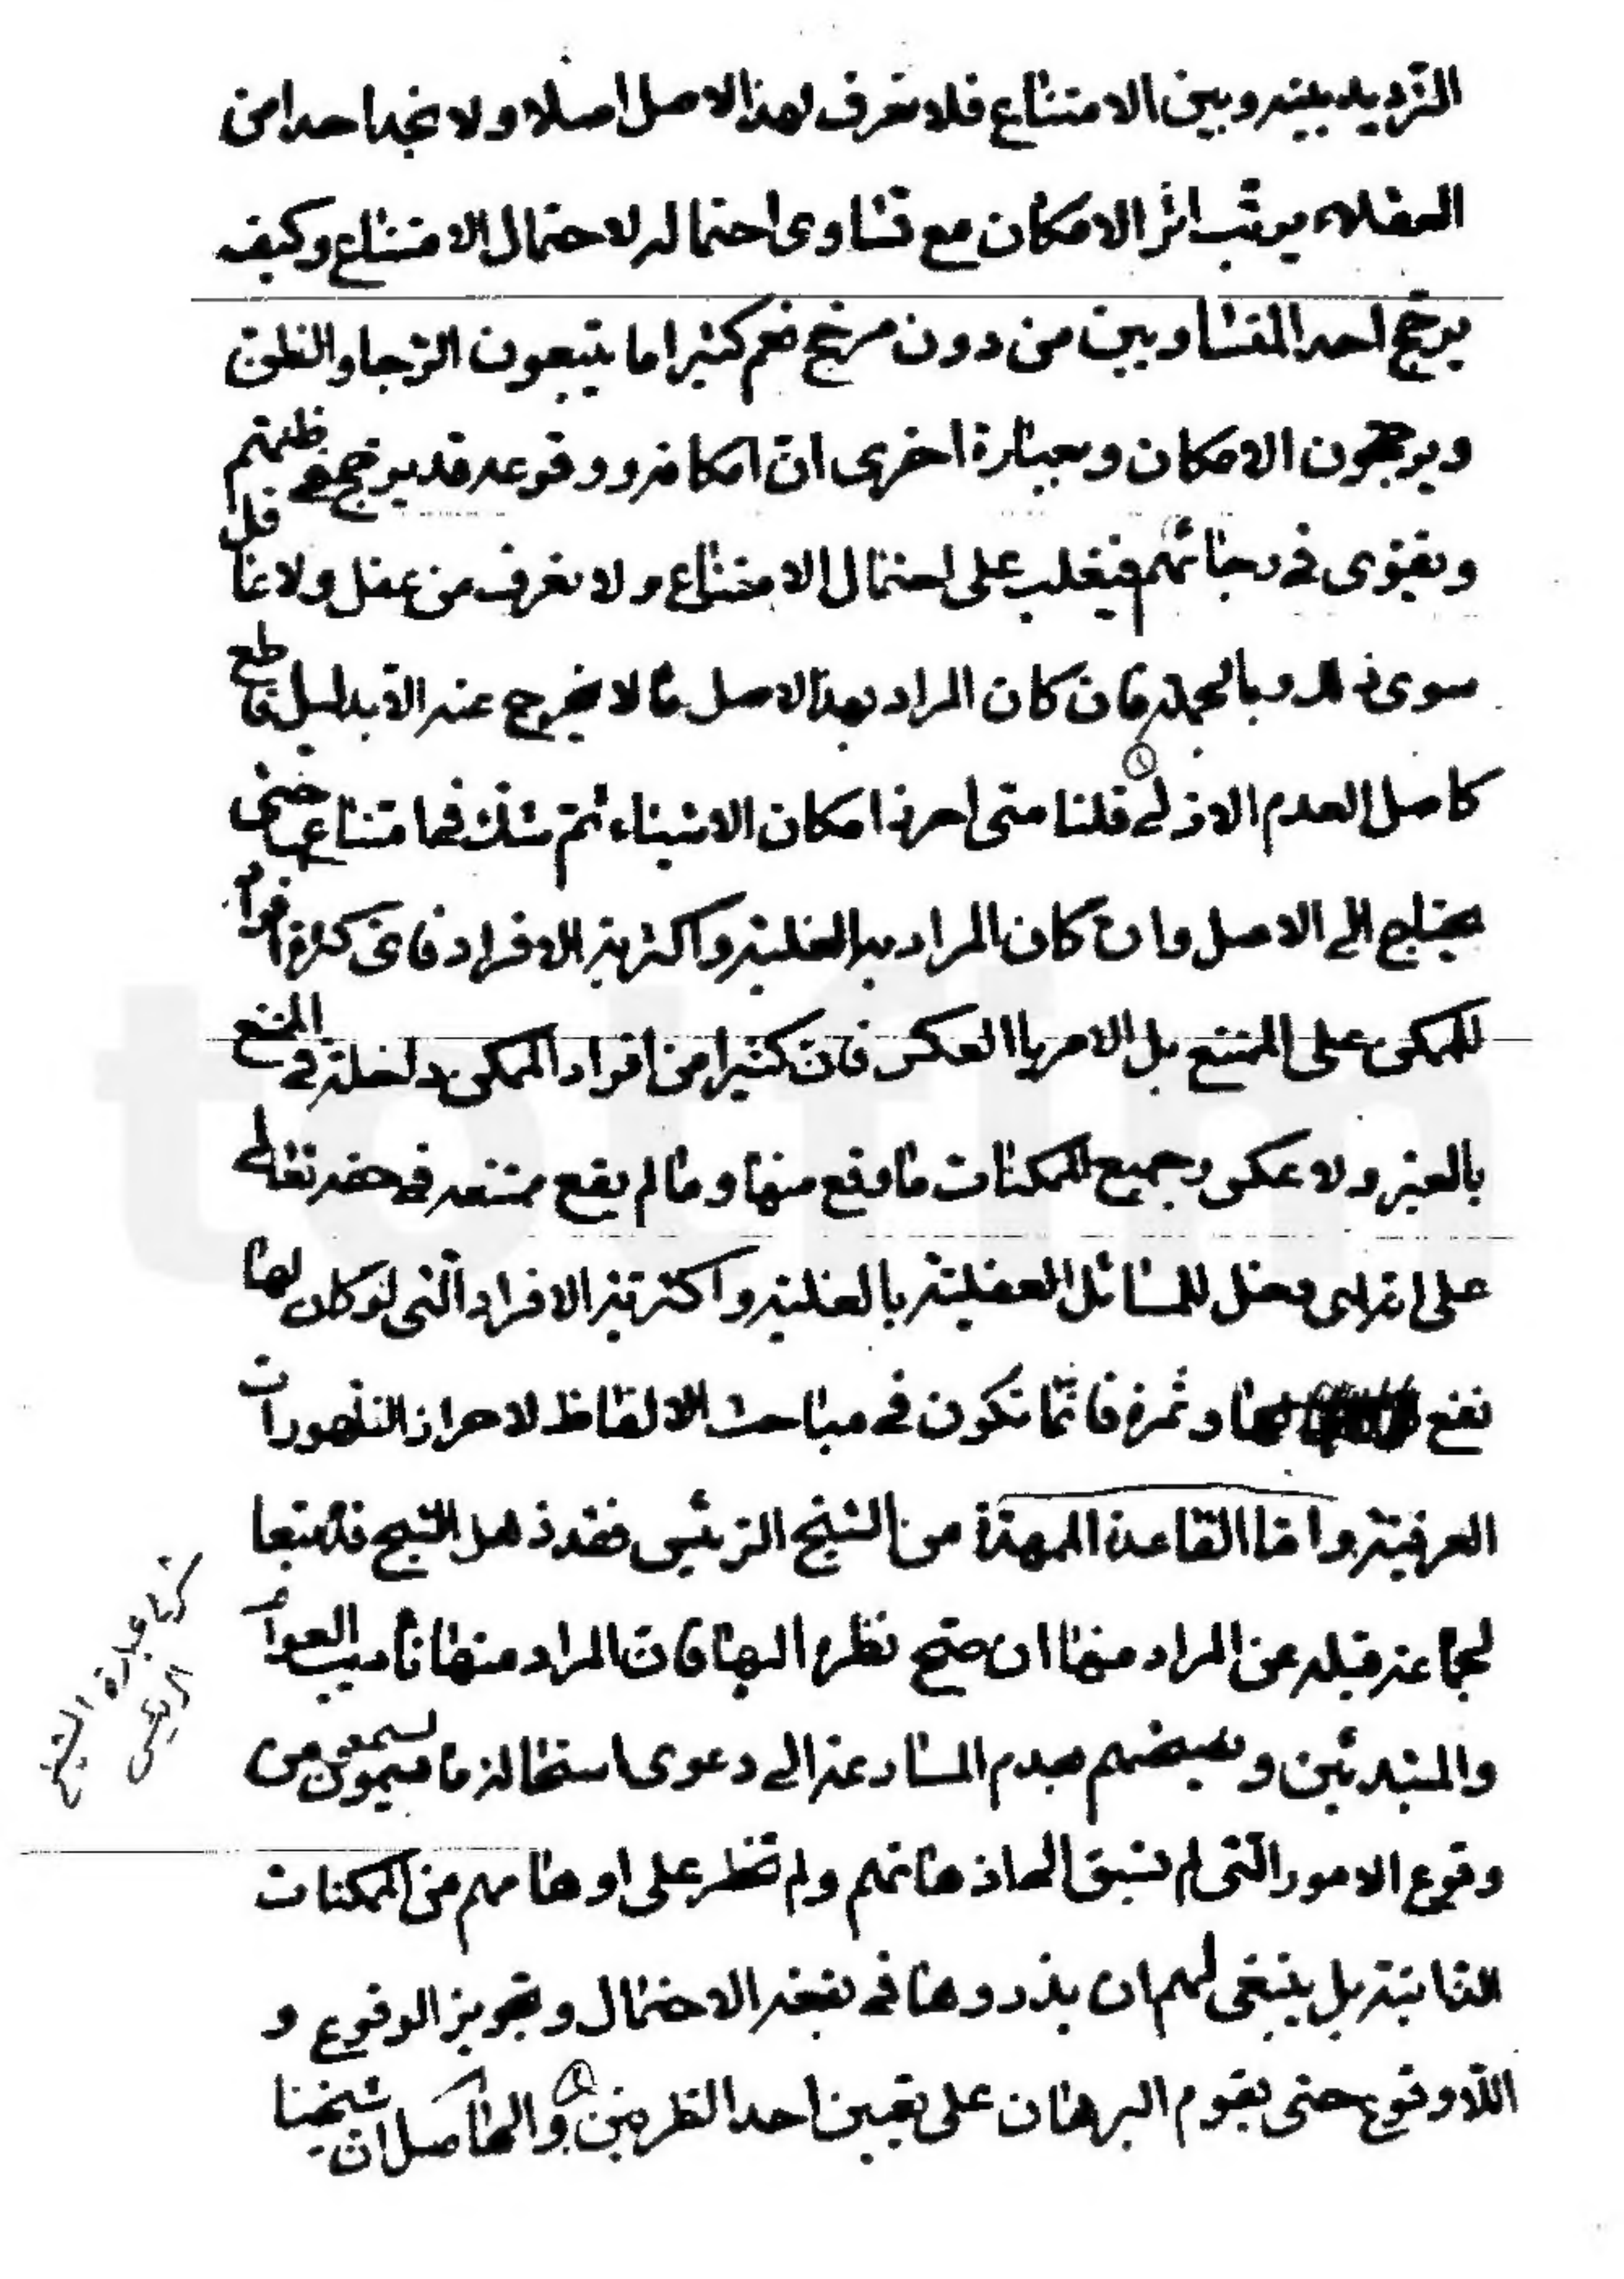 الترديد بينه وبين الامتناع فلا نعرف لهذا الاصل اصلا ولا نجد احدا من
العقلاء يرتب اثر الامكان مع تساوى احتماله لاحتمال الامتناع وكيف
يرجح احد المتساويين من دون مرجح نعم كثيرا ما يتبعون الرجا والظن
ويرجحون الامكان وبعبارة اخرى ان امكانه ووقوعه قد يرجح فى ظنهم
ويقوى فى رجائهم فيغلب على احتمال الامتناع ولا نعرف من عقل ولا عاقل
سوى ذلك وبالجملة فان كان المراد بهذا الاصل ما لا يخرج عنه الا بدليل قاطع
كاصل العدم الازلى قلنا متى احرز امكان الاشياء ثم شك فى امتناعها حتى
يحتاج الى الاصل وان كان المراد به الغلبة واكثرية الافراد فاى كثرة افراد
للممكن على الممتنع بل الامر بالعكس فان كثيرا من افراد الممكن داخلة فى الممتنع
بالغير ولا عكس وجميع الممكنات ما وقع منها وما لم يقع ممتنعة فى حقه تعالى
على انه اى دخل للمسائل العقلية بالغلبة واكثرية الافراد التى لو كان لها
نفع وثمرة فانما تكون فى مباحث الالفاظ لاحراز الظهورات
العرفية واما القاعدة الممهدة من الشيخ الرئيس فقد ذهل الشيخ تبعا
لجماعة قبله عن المراد منها ان صح نظره اليها فان المراد منها تاديب العوام
والمبتدئين وبعضهم بعدم المسارعة الى دعوى استحالة ما يسمعون من
وقوع الامور التى لم تسبق الى اذهانهم ولم تخطر على اوهامهم من الممكنات
الذاتية بل ينبغى لهم ان يذروها فى بقعة الاحتمال وتجويز الوقوع و
اللاوقوع حتى يقوم البرهان على تعيين احد الطرفين والحاصل ان شيخنا
عبارة الشيخ
الرئيس